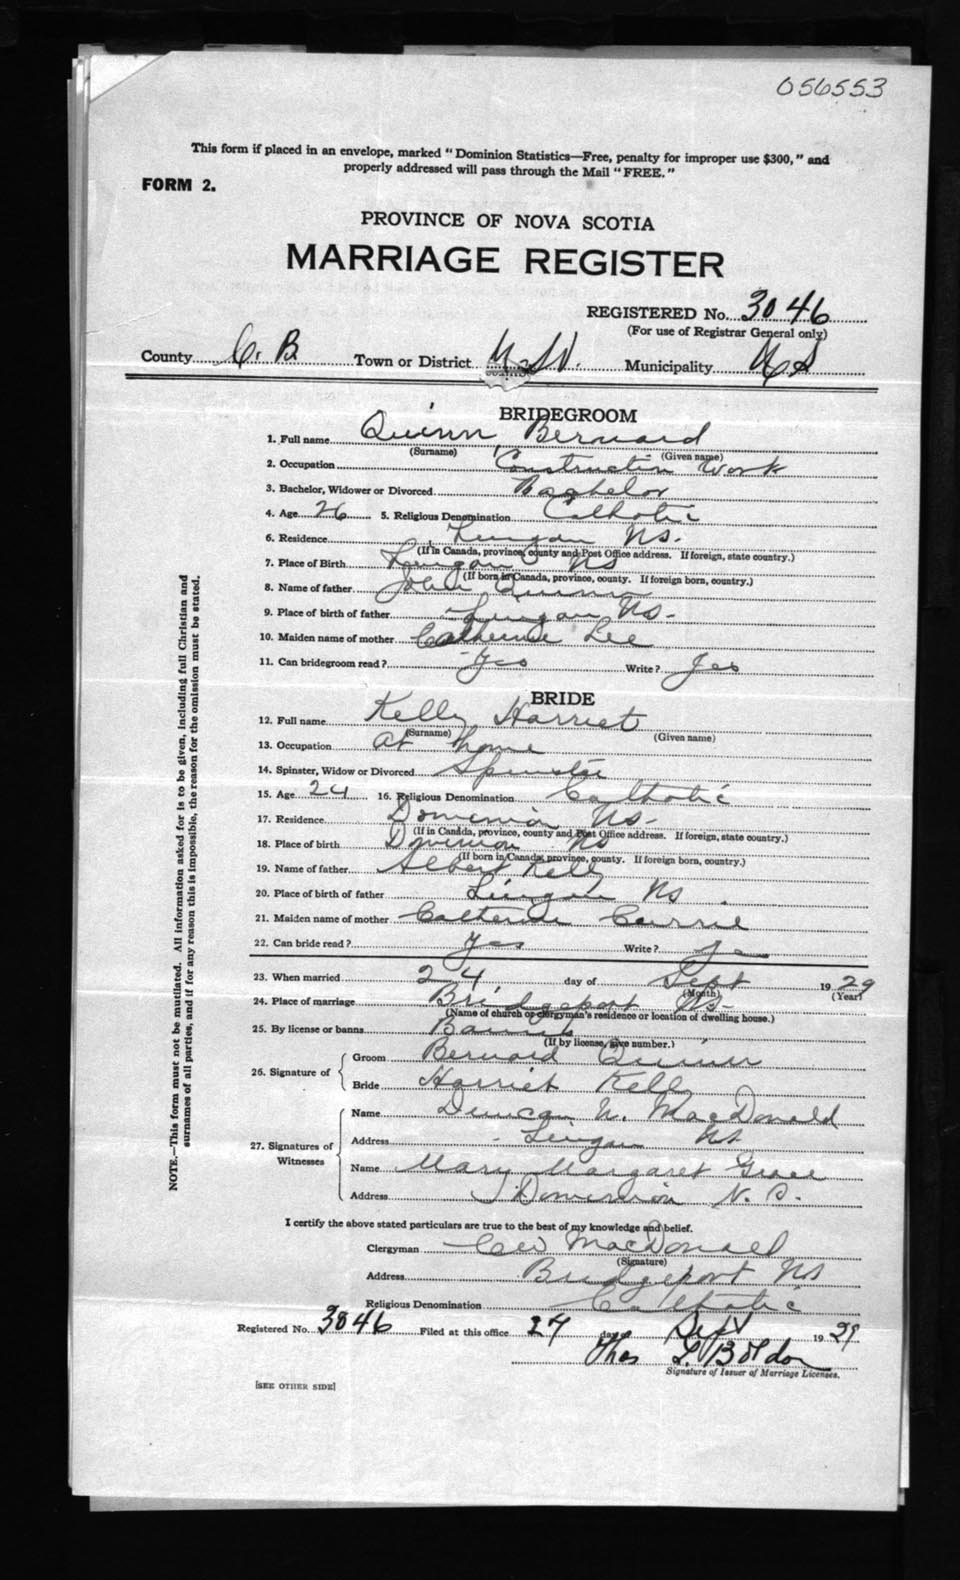 056553
This form if placed in an envelope, marked "Dominion Statistics—Free, penalty for improper use $300," and
properly addressed will pass through the Mail "FREE."
FORM 2.
PROVINCE OF NOVA SCOTIA
MARRIAGE REGISTER
REGISTERED No. 3046
(For use of Registrar General only)
County C. B Town or District Municipality
BRIDEGROOM
1. Full name Quinn Bernard
(Surname) (Given name)
2. Occupation Construction Work
3. Bachelor, Widower or Divorced Bachelor
4. Age 26 5. Religious Denomination Catholic
6. Residence Lingan NS.
(If in Canada, province, county and Post Office address. If foreign, state country.)
7. Place of Birth Lingan NS
(If born in Canada, province, county. If foreign born, country.)
8. Name of father John Quinn
9. Place of birth of father Lingan NS-
10. Maiden name of mother Catherine Lee
11. Can bridegroom read? Yes Write? Yes
BRIDE
12. Full name Kelly Harriet
(Surname) (Given name)
13. Occupation At home
14. Spinster, Widow or Divorced Spinster
15. Age 24 16. Religious Denomination Catholic
17. Residence Dominion NS-
(If in Canada, province, county and Post Office address. If foreign, state country.)
18. Place of birth Dominion NS
(If born in Canada, province, county. If foreign born, country.)
19. Name of father Albert Kelly
20. Place of birth of father Lingan NS
21. Maiden name of mother Catherine Currie
22. Can bride read? Yes Write?
23. When married 24 day of Sept 1929
(Month) (Year)
24. Place of marriage Bridgeport NS-
(Name of church or clergyman's residence or location of dwelling house.)
25. By license or banns Banns
(If by license, give number.)
26. Signature of
Groom Bernard Quinn
Bride Harriet Kelly
27. Signatures of Witnesses
Name Duncan N. MacDonald
Address Lingan NS
Name Mary Margaret Grace
Address Dominion N. S.
I certify the above stated particulars are true to the best of my knowledge and belief.
Clergyman MacDonald
(Signature)
Address Bridgeport NS
Religious Denomination Catholic
Registered No. 3046 Filed at this office 27 day of Sept 1929
Thos
Signature of Issuer of Marriage Licenses.
[SEE OTHER SIDE]
NOTE.—This form must not be mutilated. All information asked for is to be given, including full Christian and
surnames of all parties, and if for any reason this is impossible, the reason for the omission must be stated.